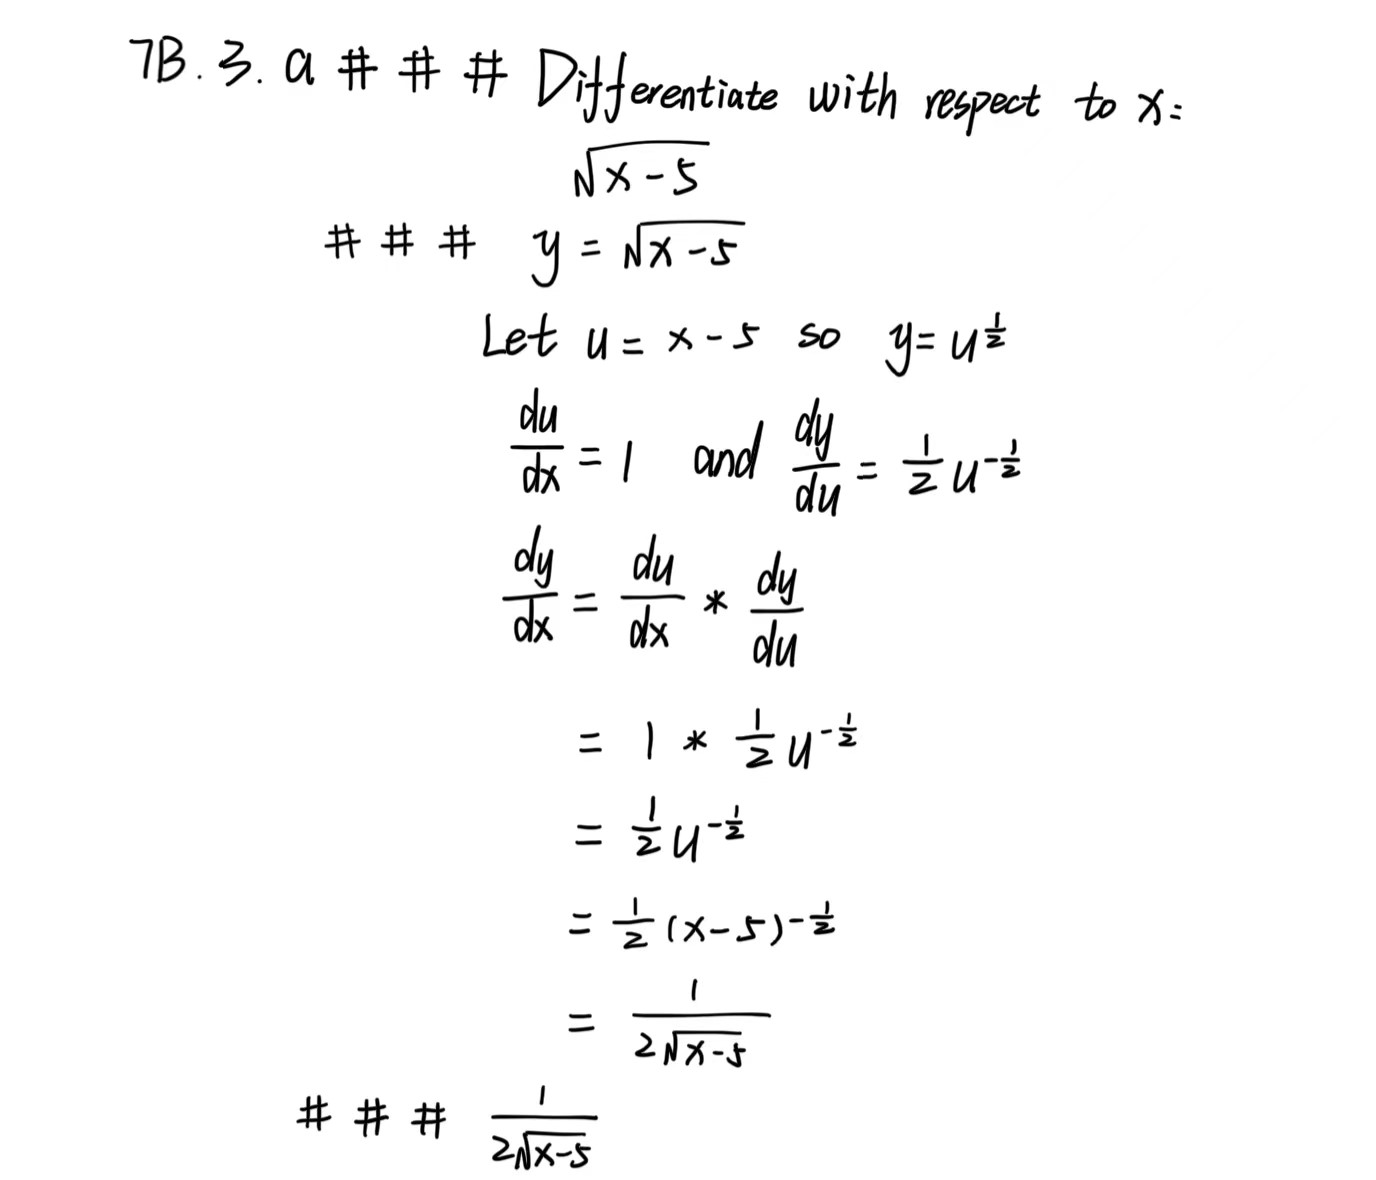 7B.3.a # # # Differentiate with respect to x:
√(x-5)
# # # y = √(x-5)
Let u = x-5 so y = u^(1/2)
du/dx = 1 and dy/du = 1/2 u^(-1/2)
dy/dx = du/dx * dy/du
= 1 * 1/2 u^(-1/2)
= 1/2 u^(-1/2)
= 1/2 (x-5)^(-1/2)
= 1/(2√(x-5))
# # # 1/(2√(x-5))